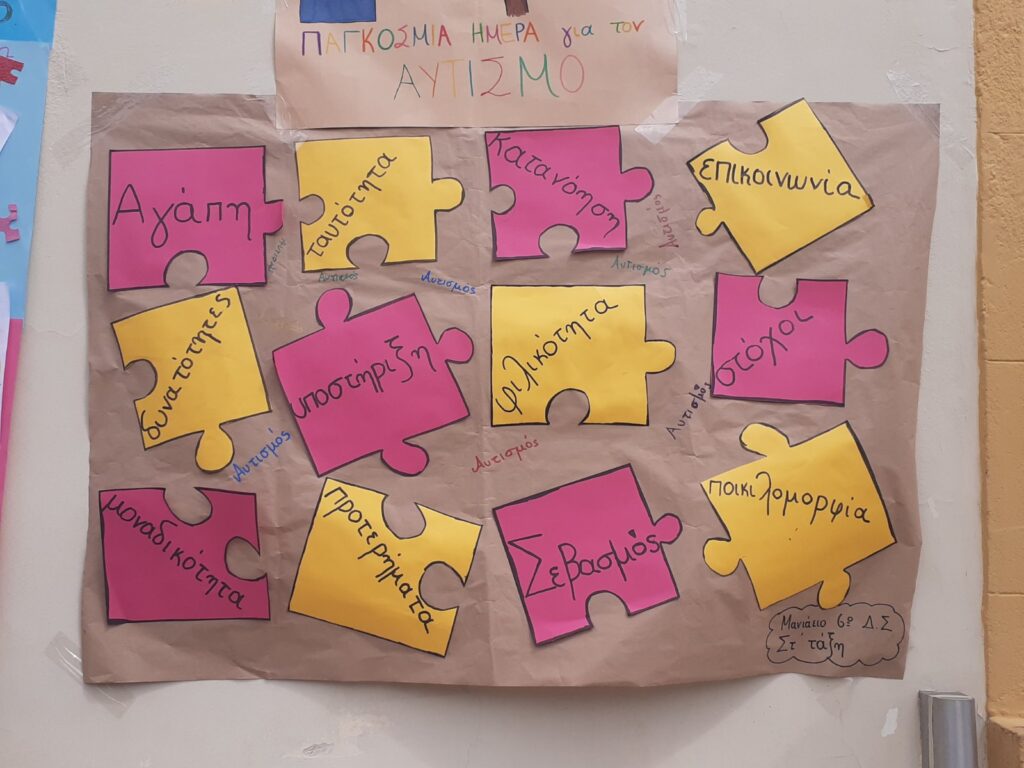 ΠΑΓΚΟΣΜΙΑ ΗΜΕΡΑ για τον
ΑΥΤΙΣΜΟ
Αγάπη
ταυτότητα
Κατανόηση
επικοινωνία
Αυτισμός
Αυτισμός
Αυτισμός
Αυτισμός
δυνατότητες
υποστήριξη
φιλικότητα
στόχοι
Αυτισμός
Αυτισμός
Αυτισμός
μοναδικότητα
Προτερήματα
Σεβασμός
ποικιλομορφία
Μανιάκιο 6º Δ.Σ
Στ' τάξη